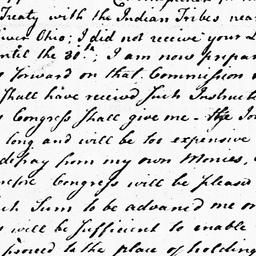 Treaty with the Indian Tribes near
River Ohio; I did not receive your L
until the 30th; I am now prepar
forward on that Commission
Shall have received Such Instruct
Congress Shall give me - the Jo
long and will be too expensive
defray from my own Monies,
Congress will be pleased
Sum to be advanced me on
will be Sufficient to enable
proceed to the place of holding